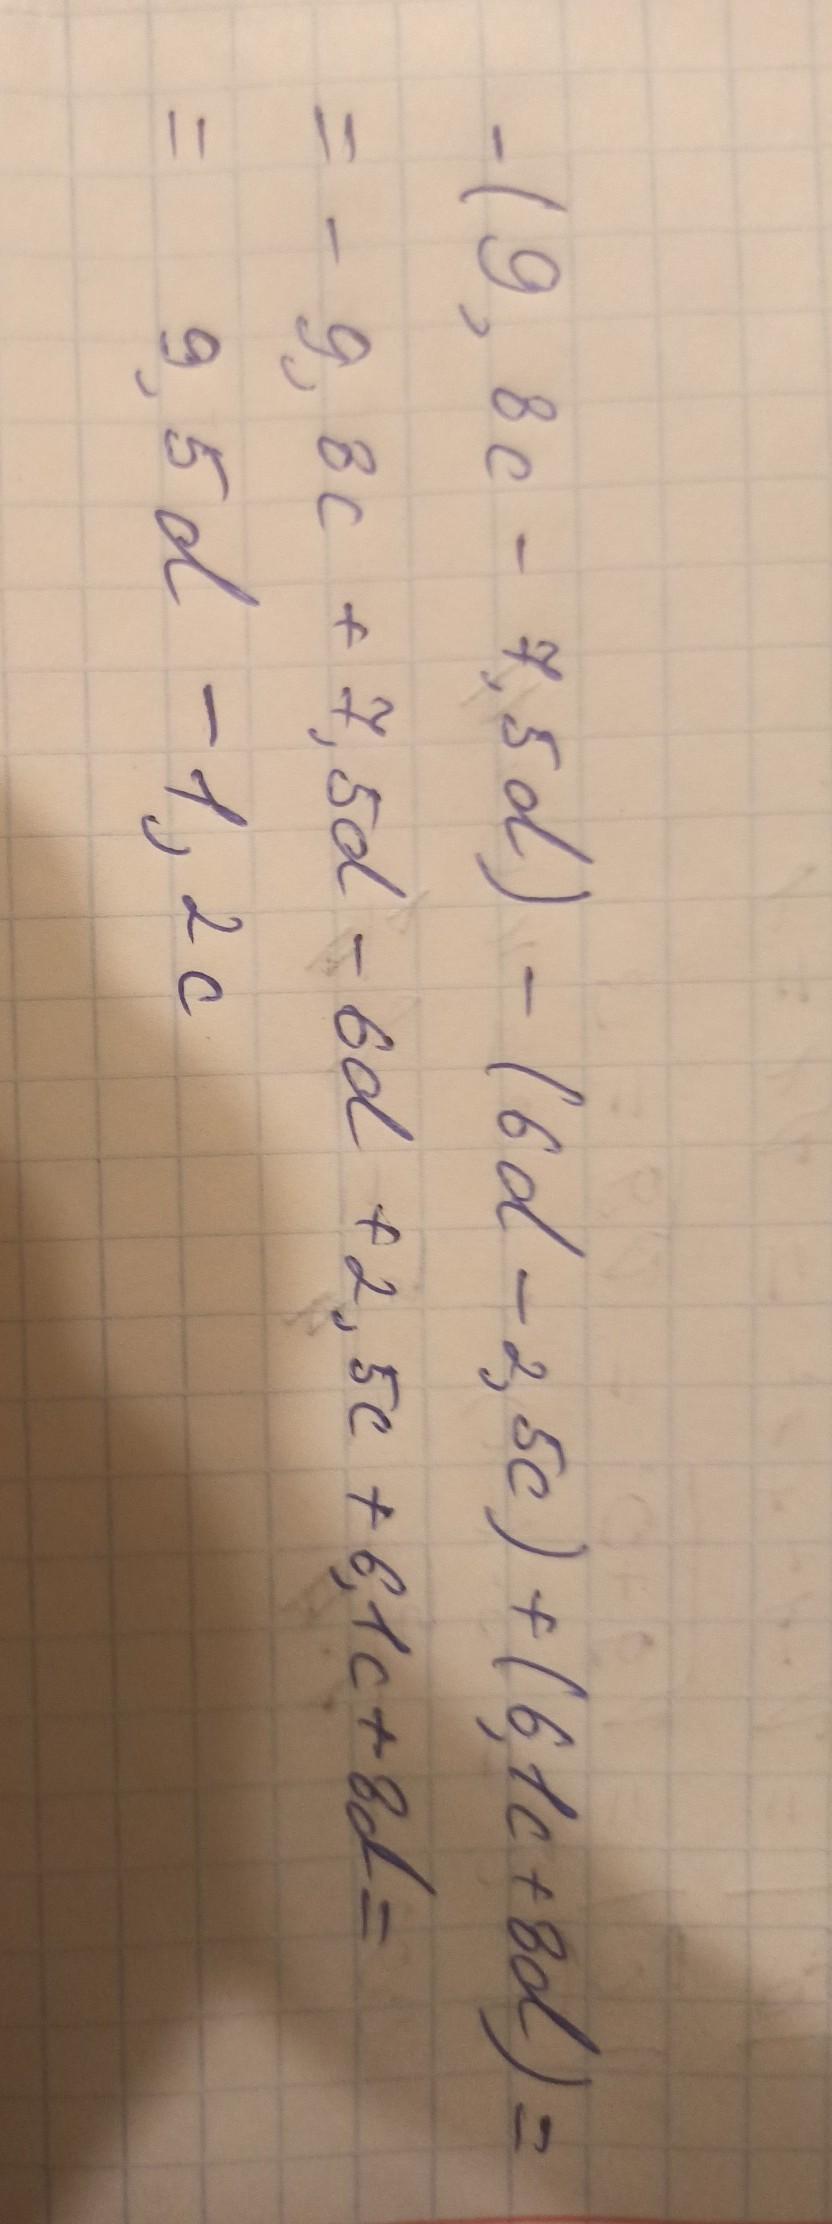 -(9,8c - 7,5d) - (6d - 2,5c) + (6,1c + 8d) =
= - 9,8c + 7,5d - 6d + 2,5c + 6,1c + 8d =
= 9,5d - 1,2c